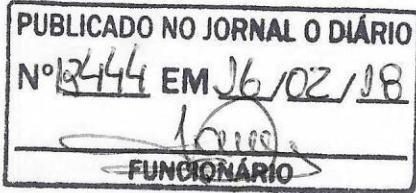 PUBLICADO NO JORNAL O DIÁRIO
Nº 13444 EM 16/02/18
FUNCIONÁRIO